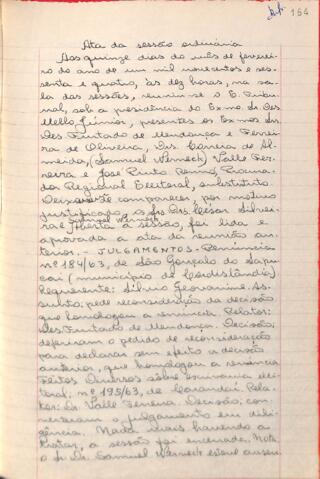 164
Ata da sessão ordinária
Aos quinze dias do mês de feverei
ro do ano de um mil novecentos e ses-
senta e quatro, às dez horas, na sa
la das sessões, reuniu-se o E. Tribu
nal, sob a presidência do Exmo Sr. Des.
Mello Júnior, presentes os Exmos Srs.
Des. Furtado de Mendonça e Ferrei
ra de Oliveira, Drs. Correia de Al
meida, (Samuel Werneck) Valle Fer
reira e José Pinto Procura
dor Regional Eleitoral, substituto.
Deixou de comparecer, por motivo
justificado, o Sr. Drs. César Silvei
ra e Samuel Werneck
Aberta a sessão, foi lida e
aprovada a ata da reunião an
terior. - JULGAMENTOS. - Renúncia
nº 184/63, de São Gonçalo do Sapu
caí (município de Cordislândia)
Requerente: Silvio Geovanine. As
sunto: pede reconsideração da decisão
que homologou a renúncia. Relator:
Des. Furtado de Mendonça. Decisão:
deferiram o pedido de reconsideração
para declarar sem efeito a decisão
anterior, que homologou a renúncia
Feitos Diversos sobre matéria elei
toral: nº 195/63, de Carandaí. Rela
tor: Dr. Valle Ferreira. Decisão: con
verteram o julgamento em dili
gência. Nada mais havendo a
tratar, a sessão foi encerrada. Nota:
o Dr. Samuel Werneck esteve ausen